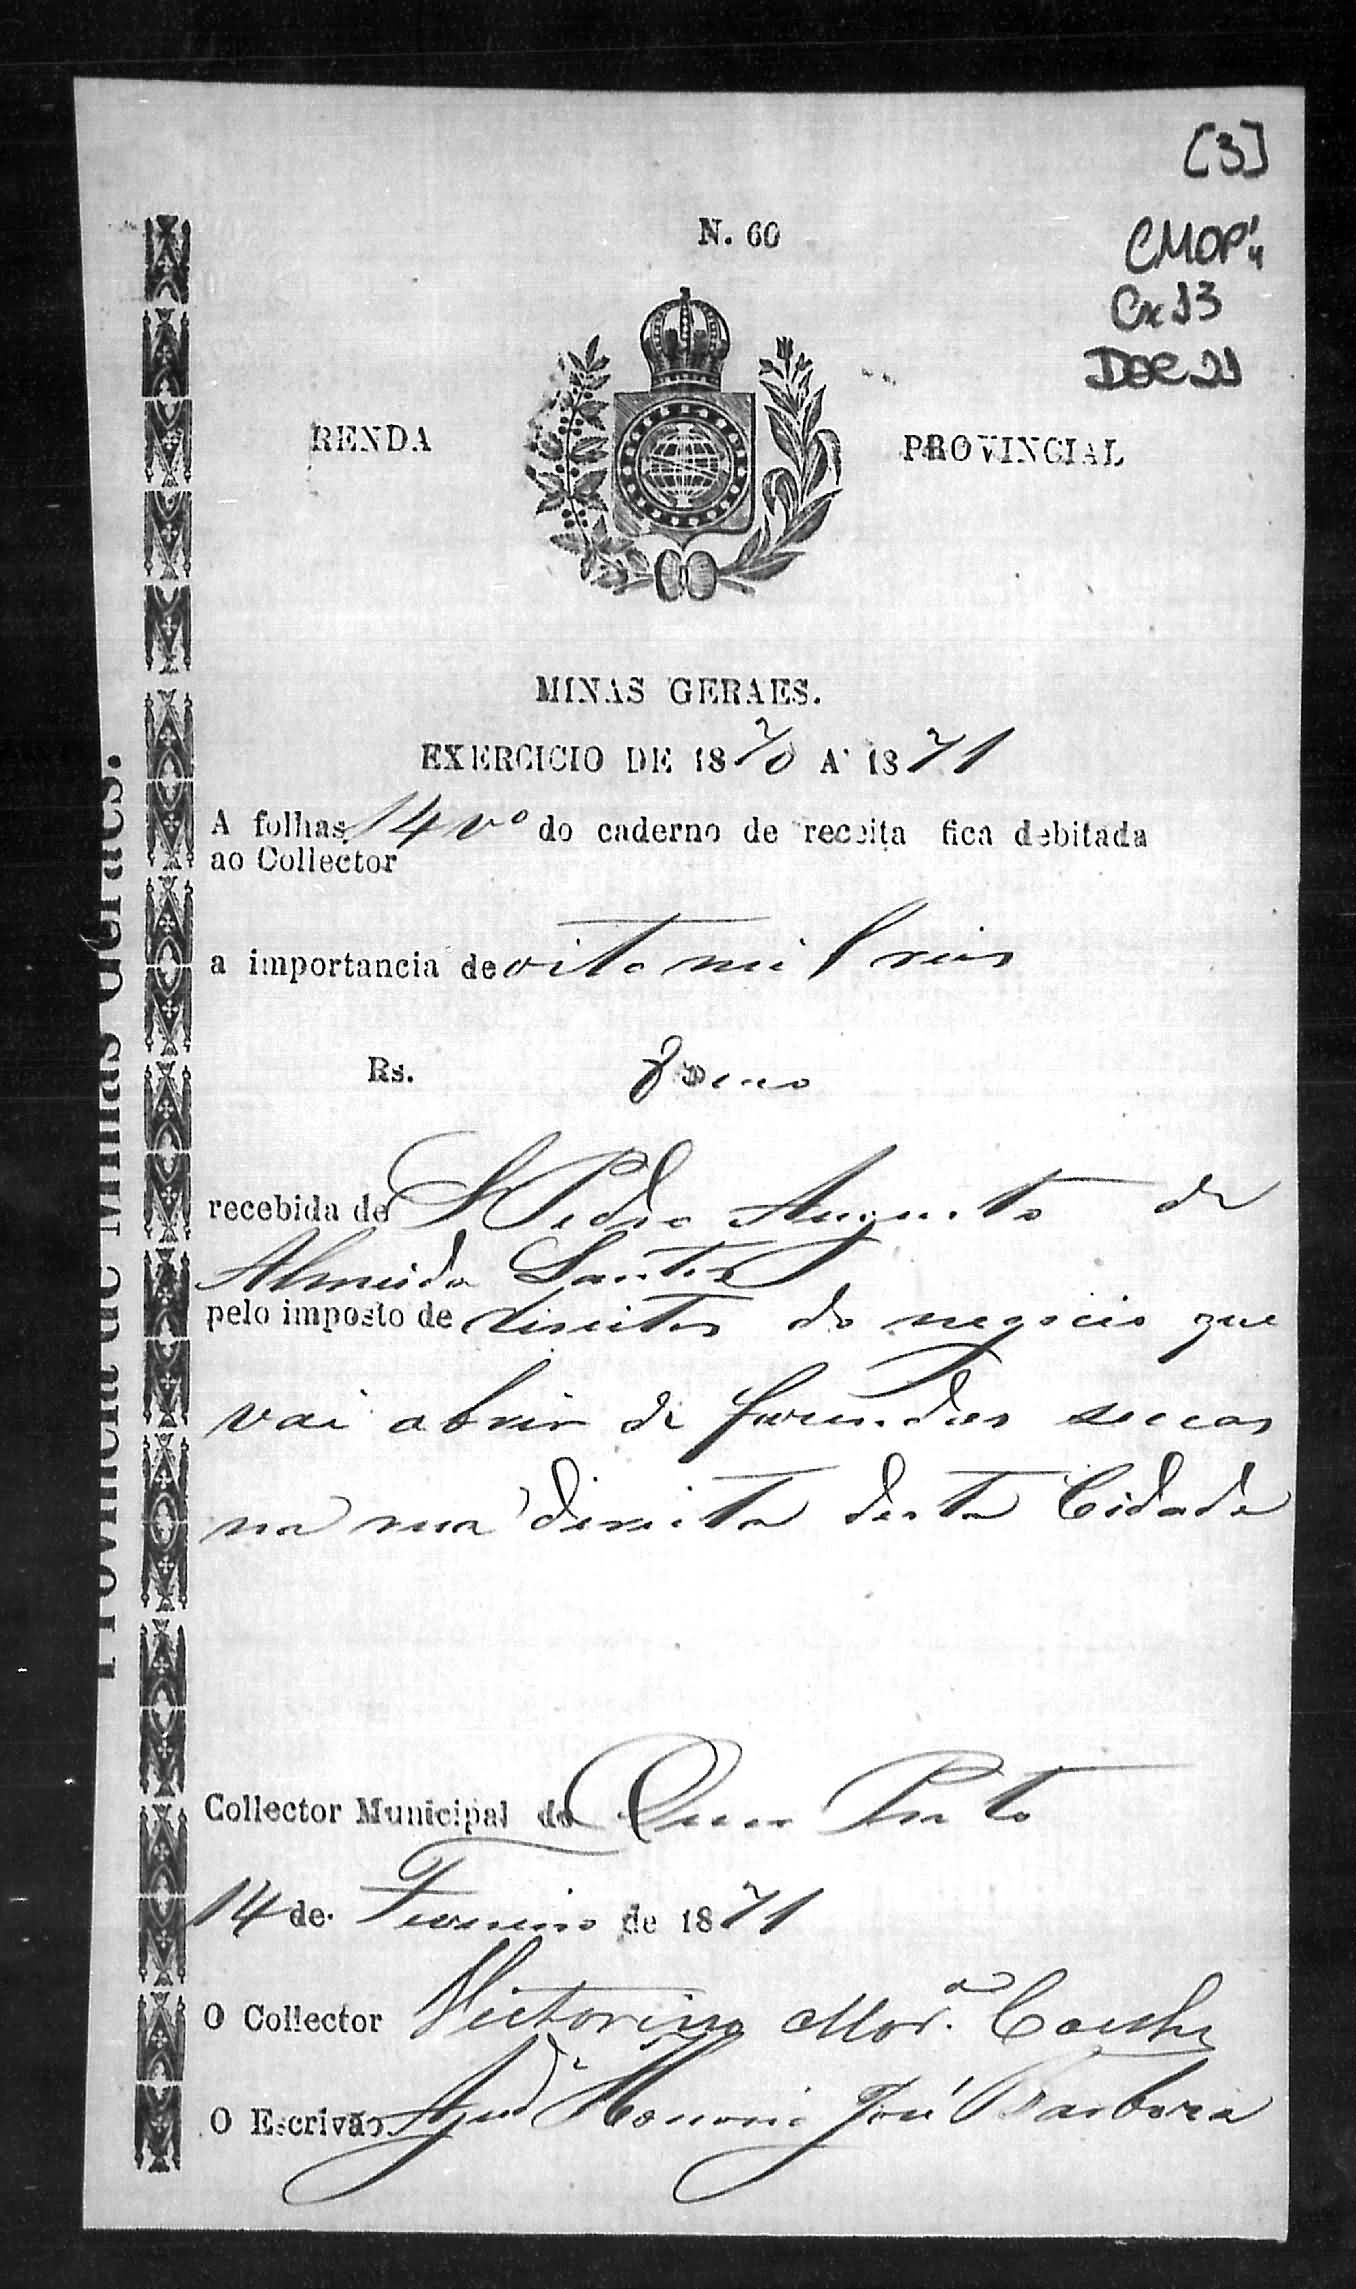 [3]
N. 60
CMOP
Cx 13
DOC 21
RENDA PROVINCIAL
MINAS GERAES.
EXERCICIO DE 1870 A' 1871
A folhas 14 vº do caderno de receita fica debitada
ao Collector
a importancia de oito mil reis
Rs. 8$000
recebida de Pedro Augusto de
Almeida Santos
pelo imposto de direitos do negocio que
vai abrir de fazendas seccas
na rua direita desta Cidade
Collector Municipal do Ouro Preto
14 de Fevereiro de 1871
O Collector Victorino Mor.ª Coelho
O Escrivão Ajudº Honorio José Barbosa
Provincia de Minas Geraes.